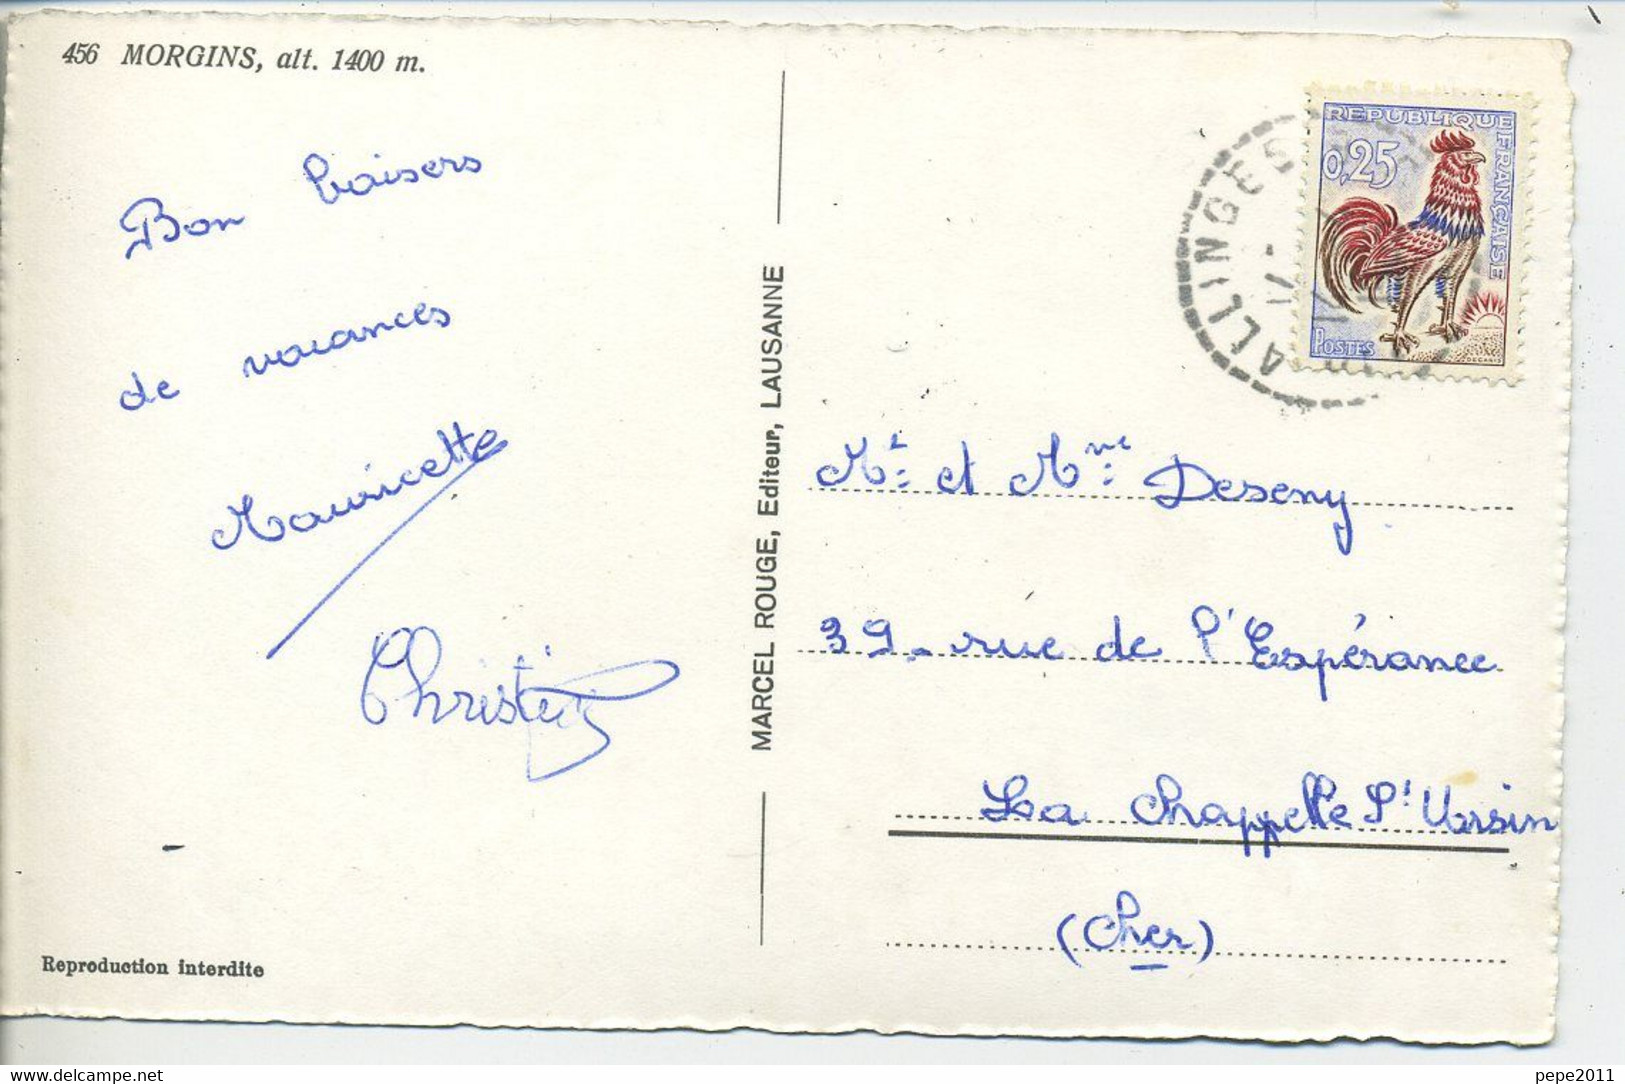 456 MORGINS, alt. 1400 m.
Bon baisers
de vacances
Mauricette
Christine
Reproduction interdite
MARCEL ROUGE, Editeur, LAUSANNE
ALLINGES
17 -
REPUBLIQUE FRANÇAISE
0,25
POSTES
DECARIS
Mr et Mme Deseny
39 - rue de l'Espérance
La Chappelle St Ursin
(Cher)
pepe2011